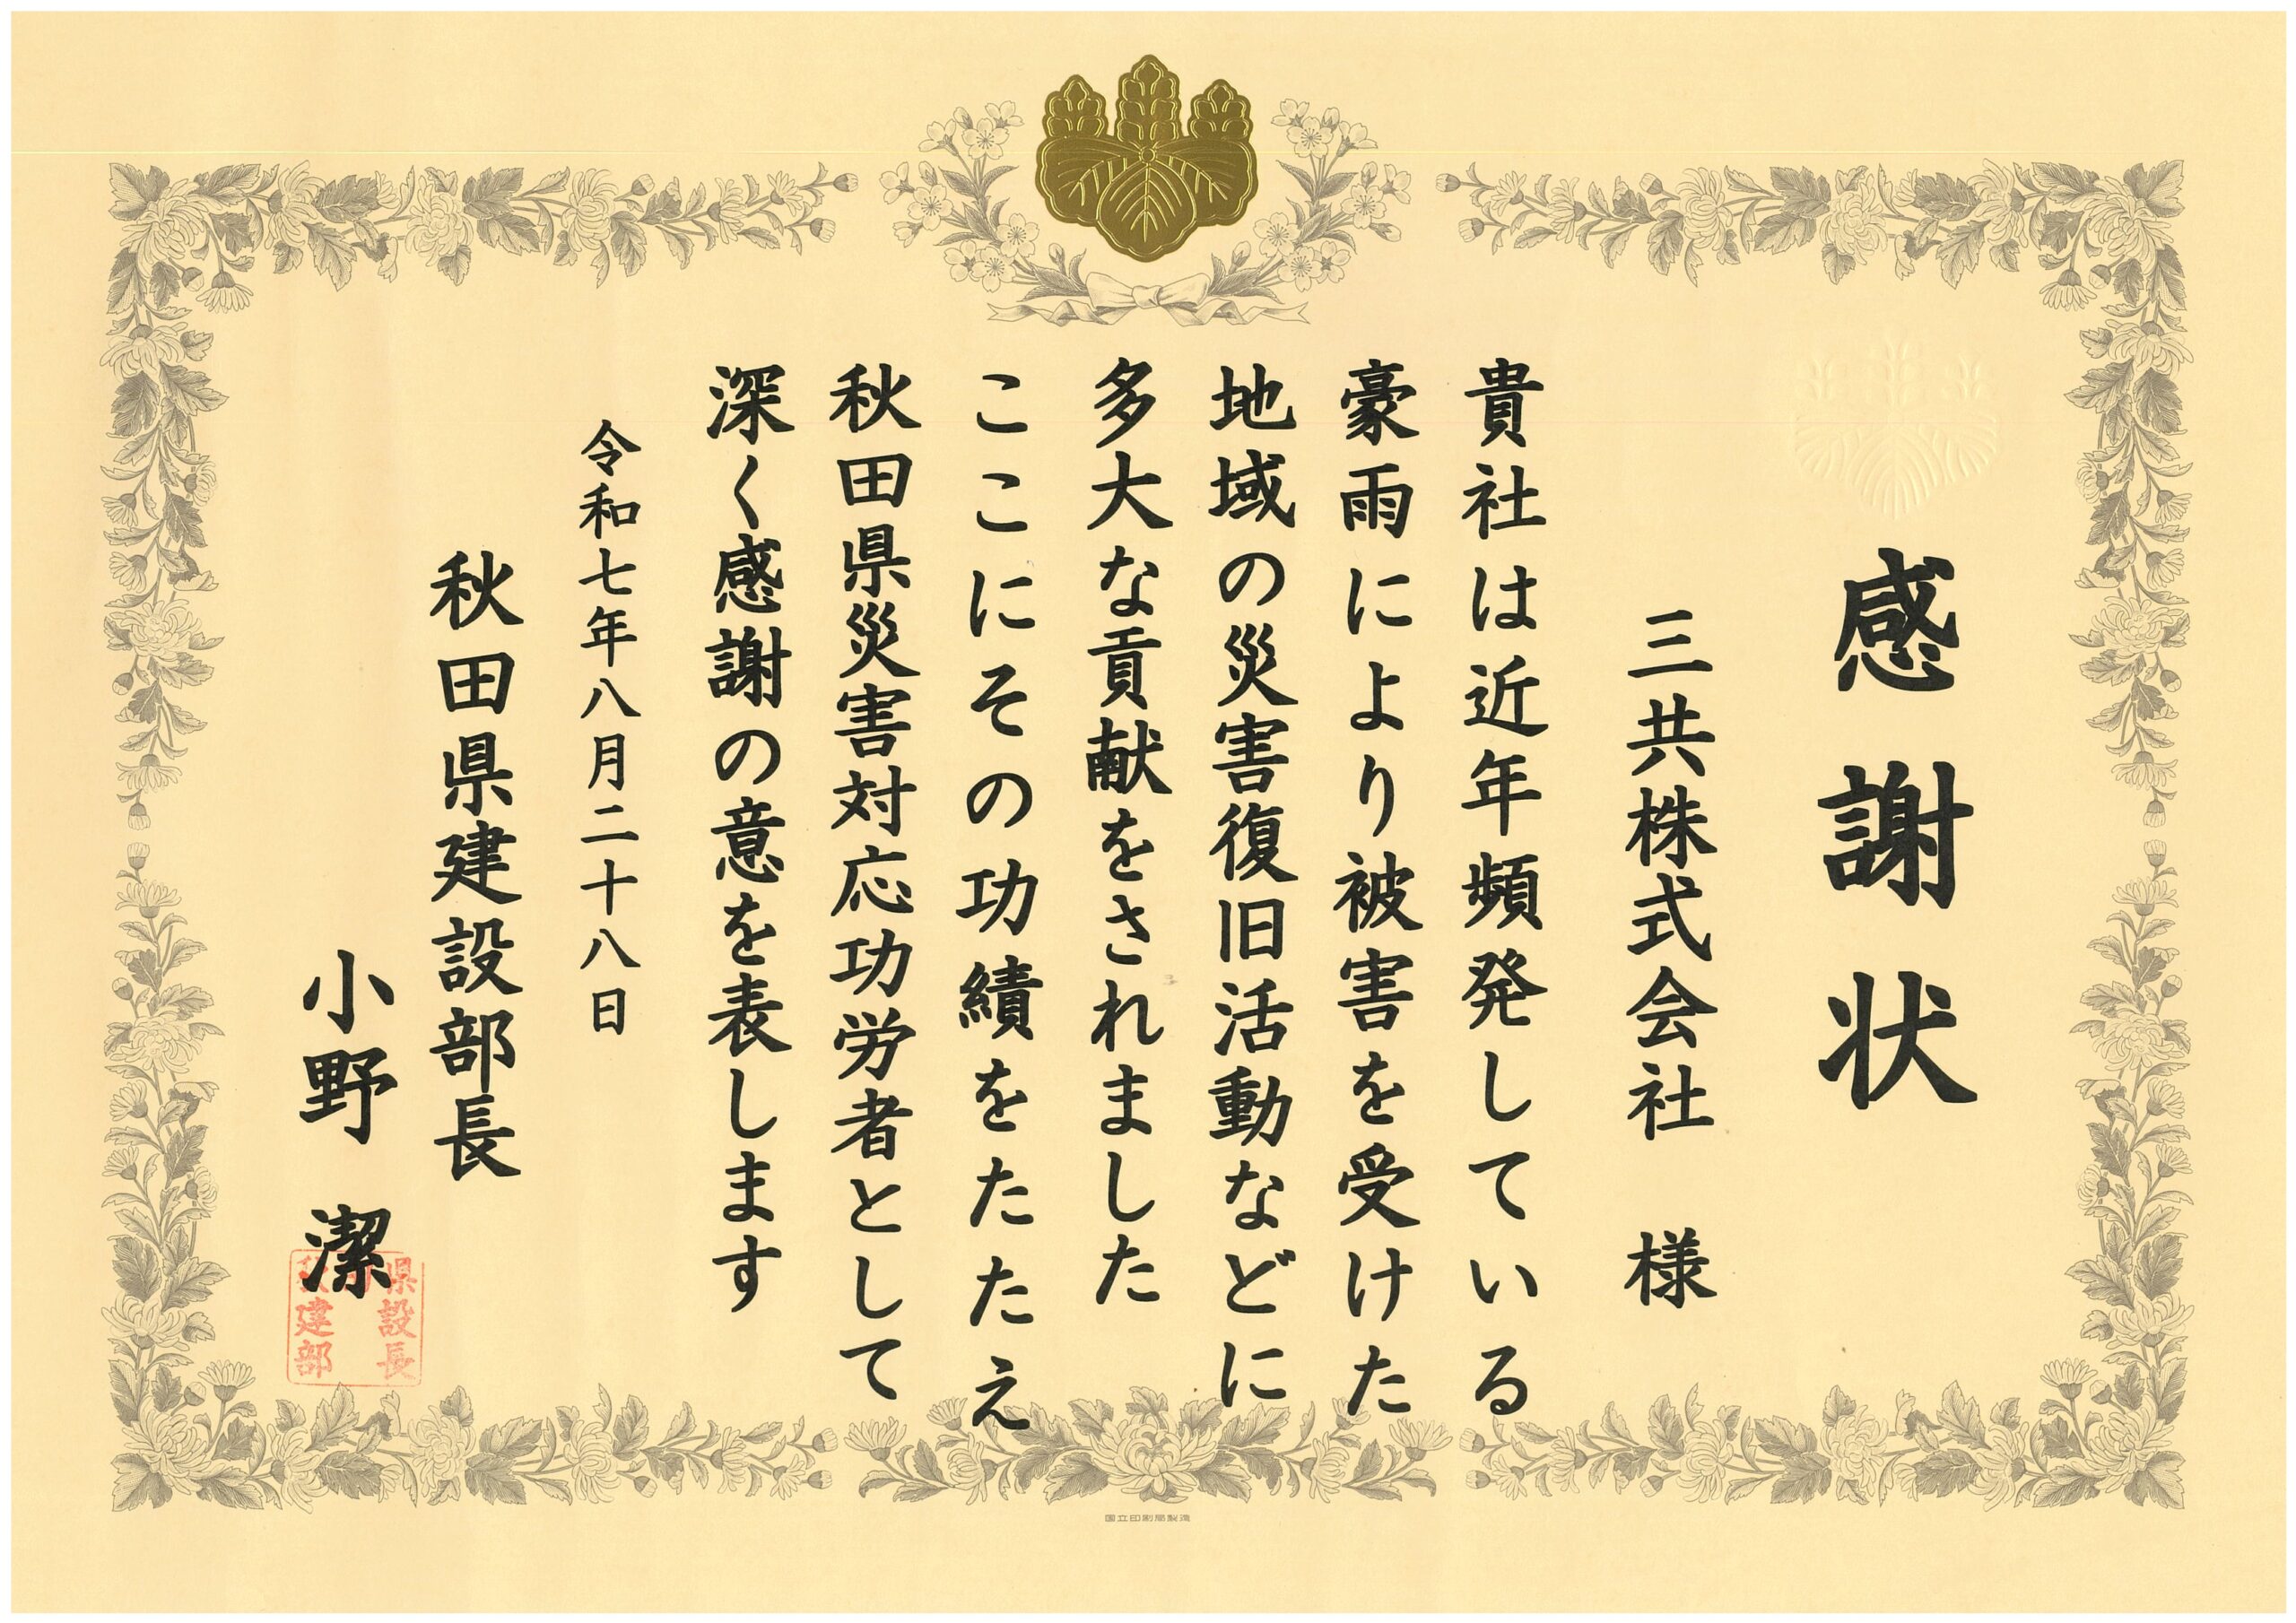 感謝状
三共株式会社 様
貴社は近年頻発している
豪雨により被害を受けた
地域の災害復旧活動などに
多大な貢献をされました
ここにその功績をたたえ
秋田県災害対応功労者として
深く感謝の意を表します
令和七年八月二十八日
秋田県建設部長
小野 潔
県設長
建部
国立印刷局製造